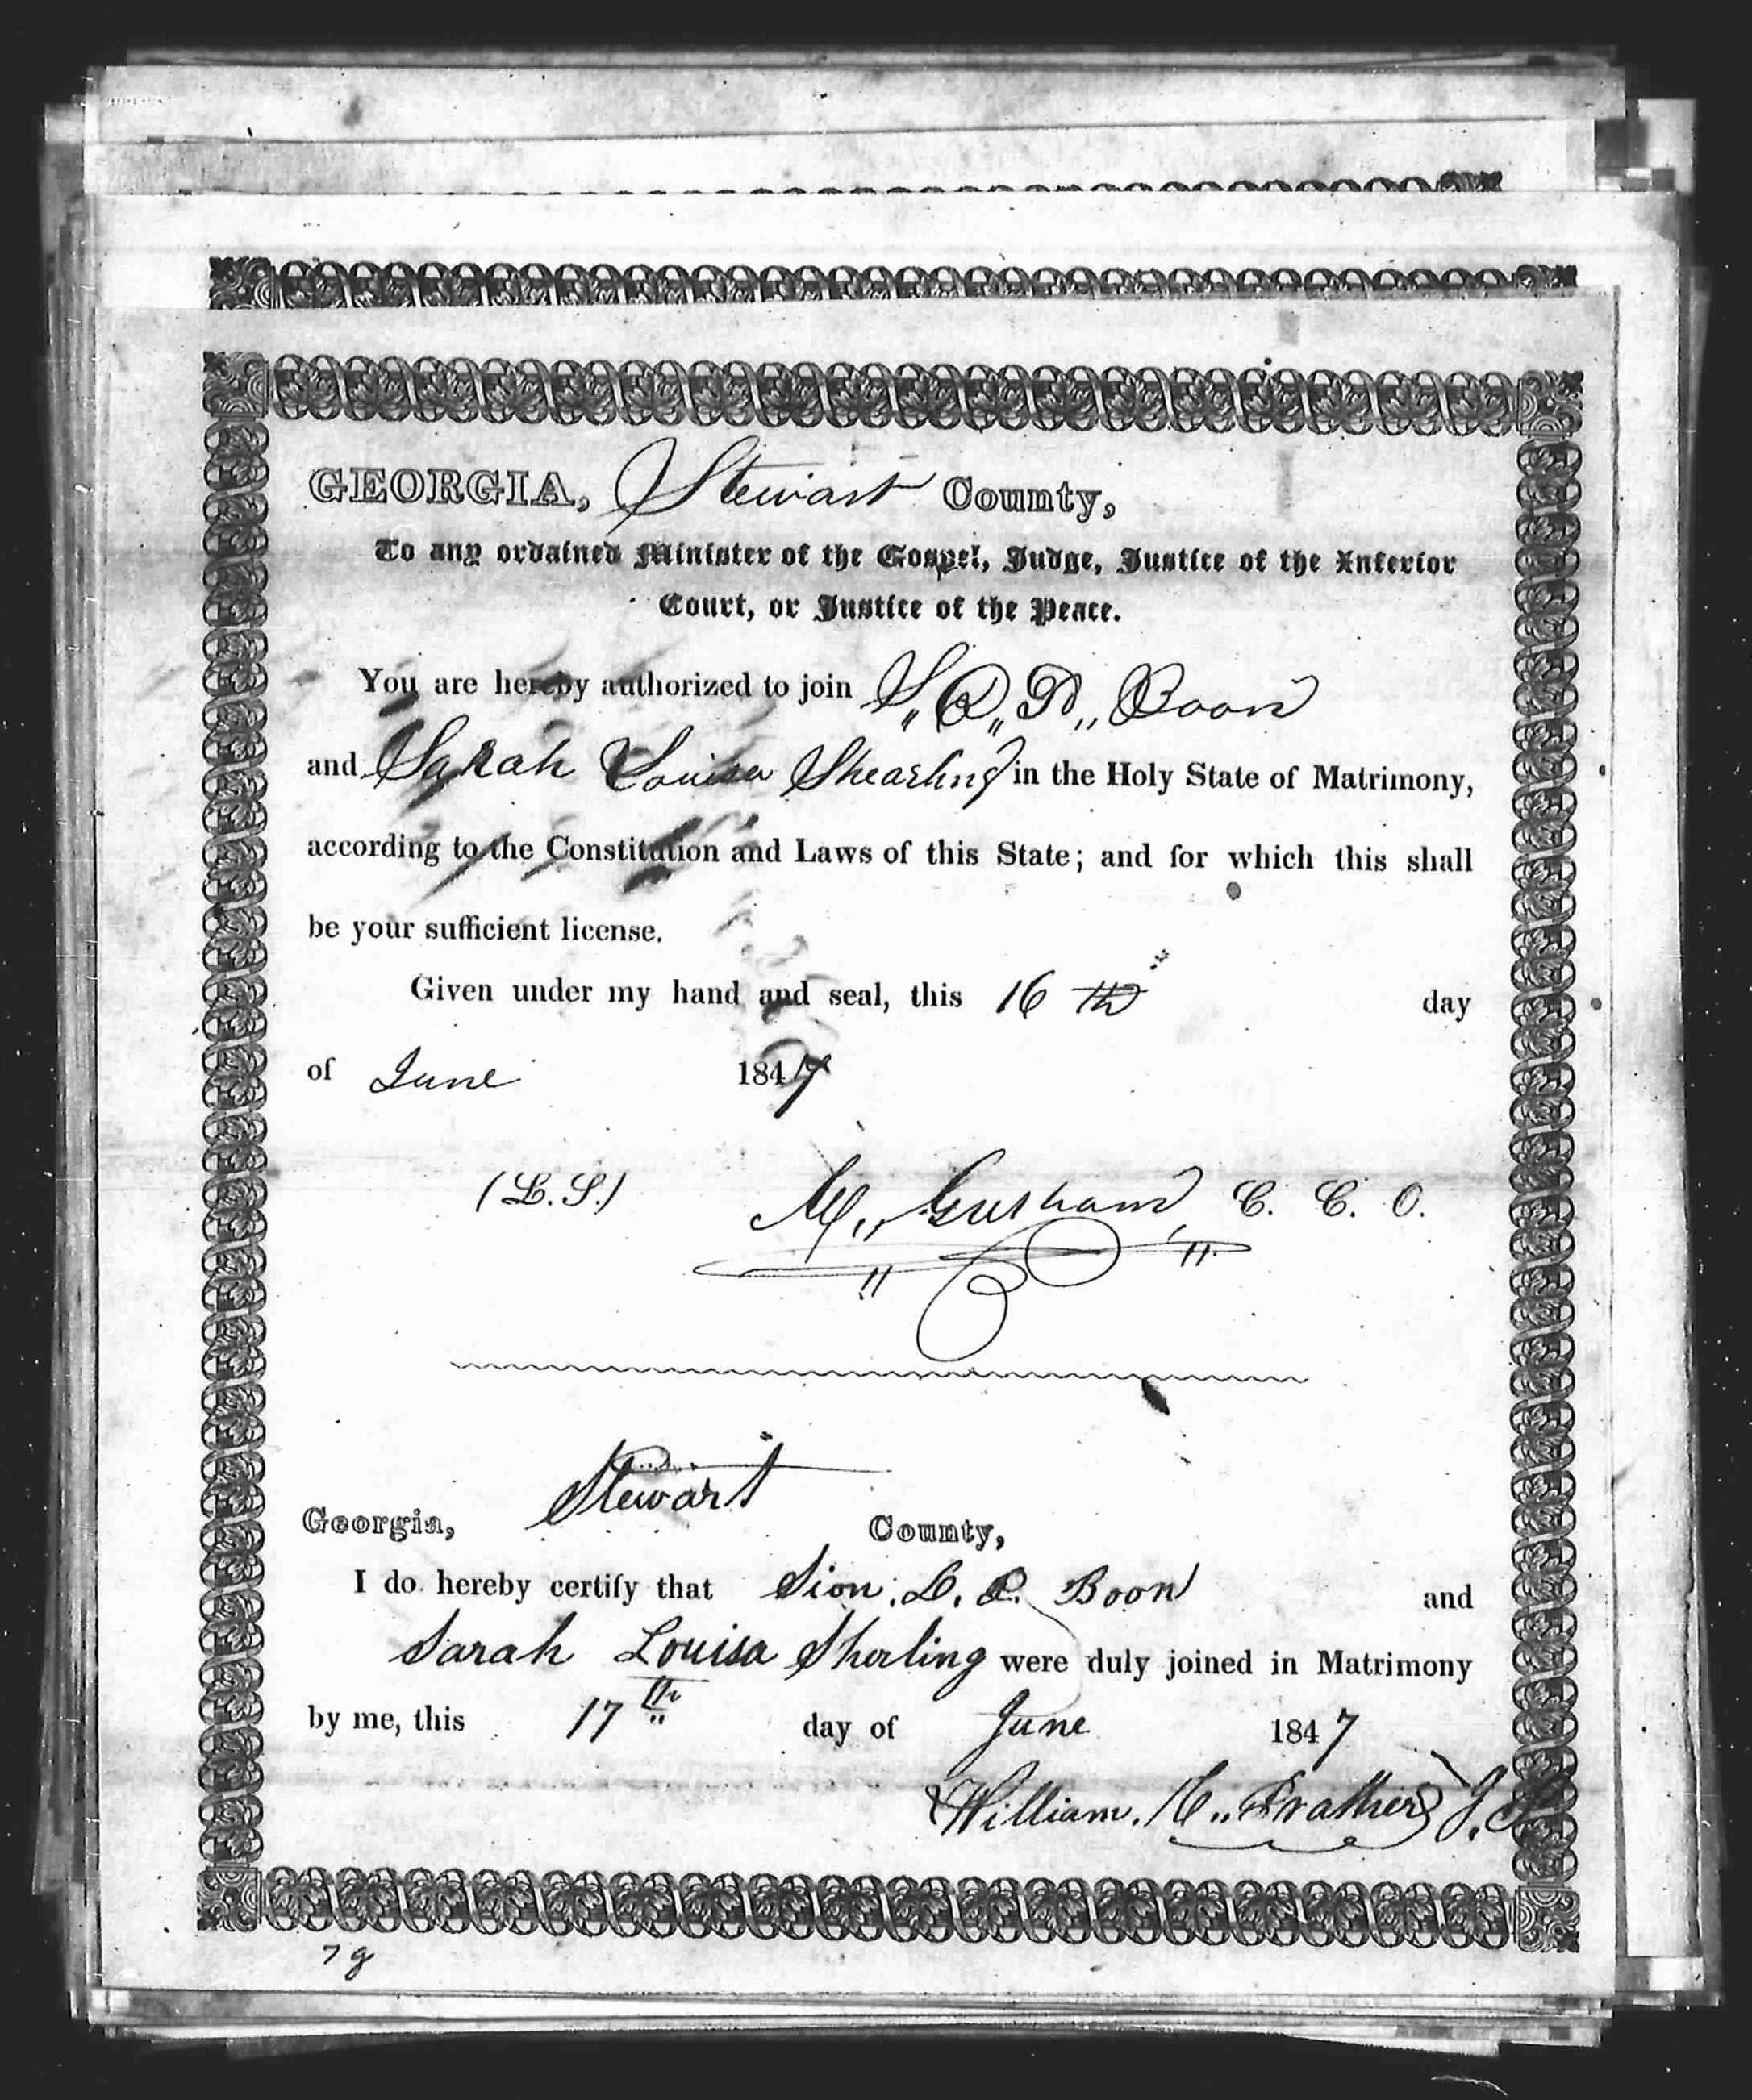 GEORGIA, Stewart County,
To any ordained Minister of the Gospel, Judge, Justice of the Inferior
Court, or Justice of the Peace.
You are hereby authorized to join S,, B,, P,, Boon
and Sarah Louisa Shearling in the Holy State of Matrimony,
according to the Constitution and Laws of this State; and for which this shall
be your sufficient license.
Given under my hand and seal, this 16 th day
of June 1847
(L.S.) M,, Gresham C. C. O.
Stewart
Georgia, County,
I do hereby certify that Sion. B. P. Boon and
Sarah Louisa Sherling were duly joined in Matrimony
by me, this 17th day of June 1847
William. H,, Prather J.
7